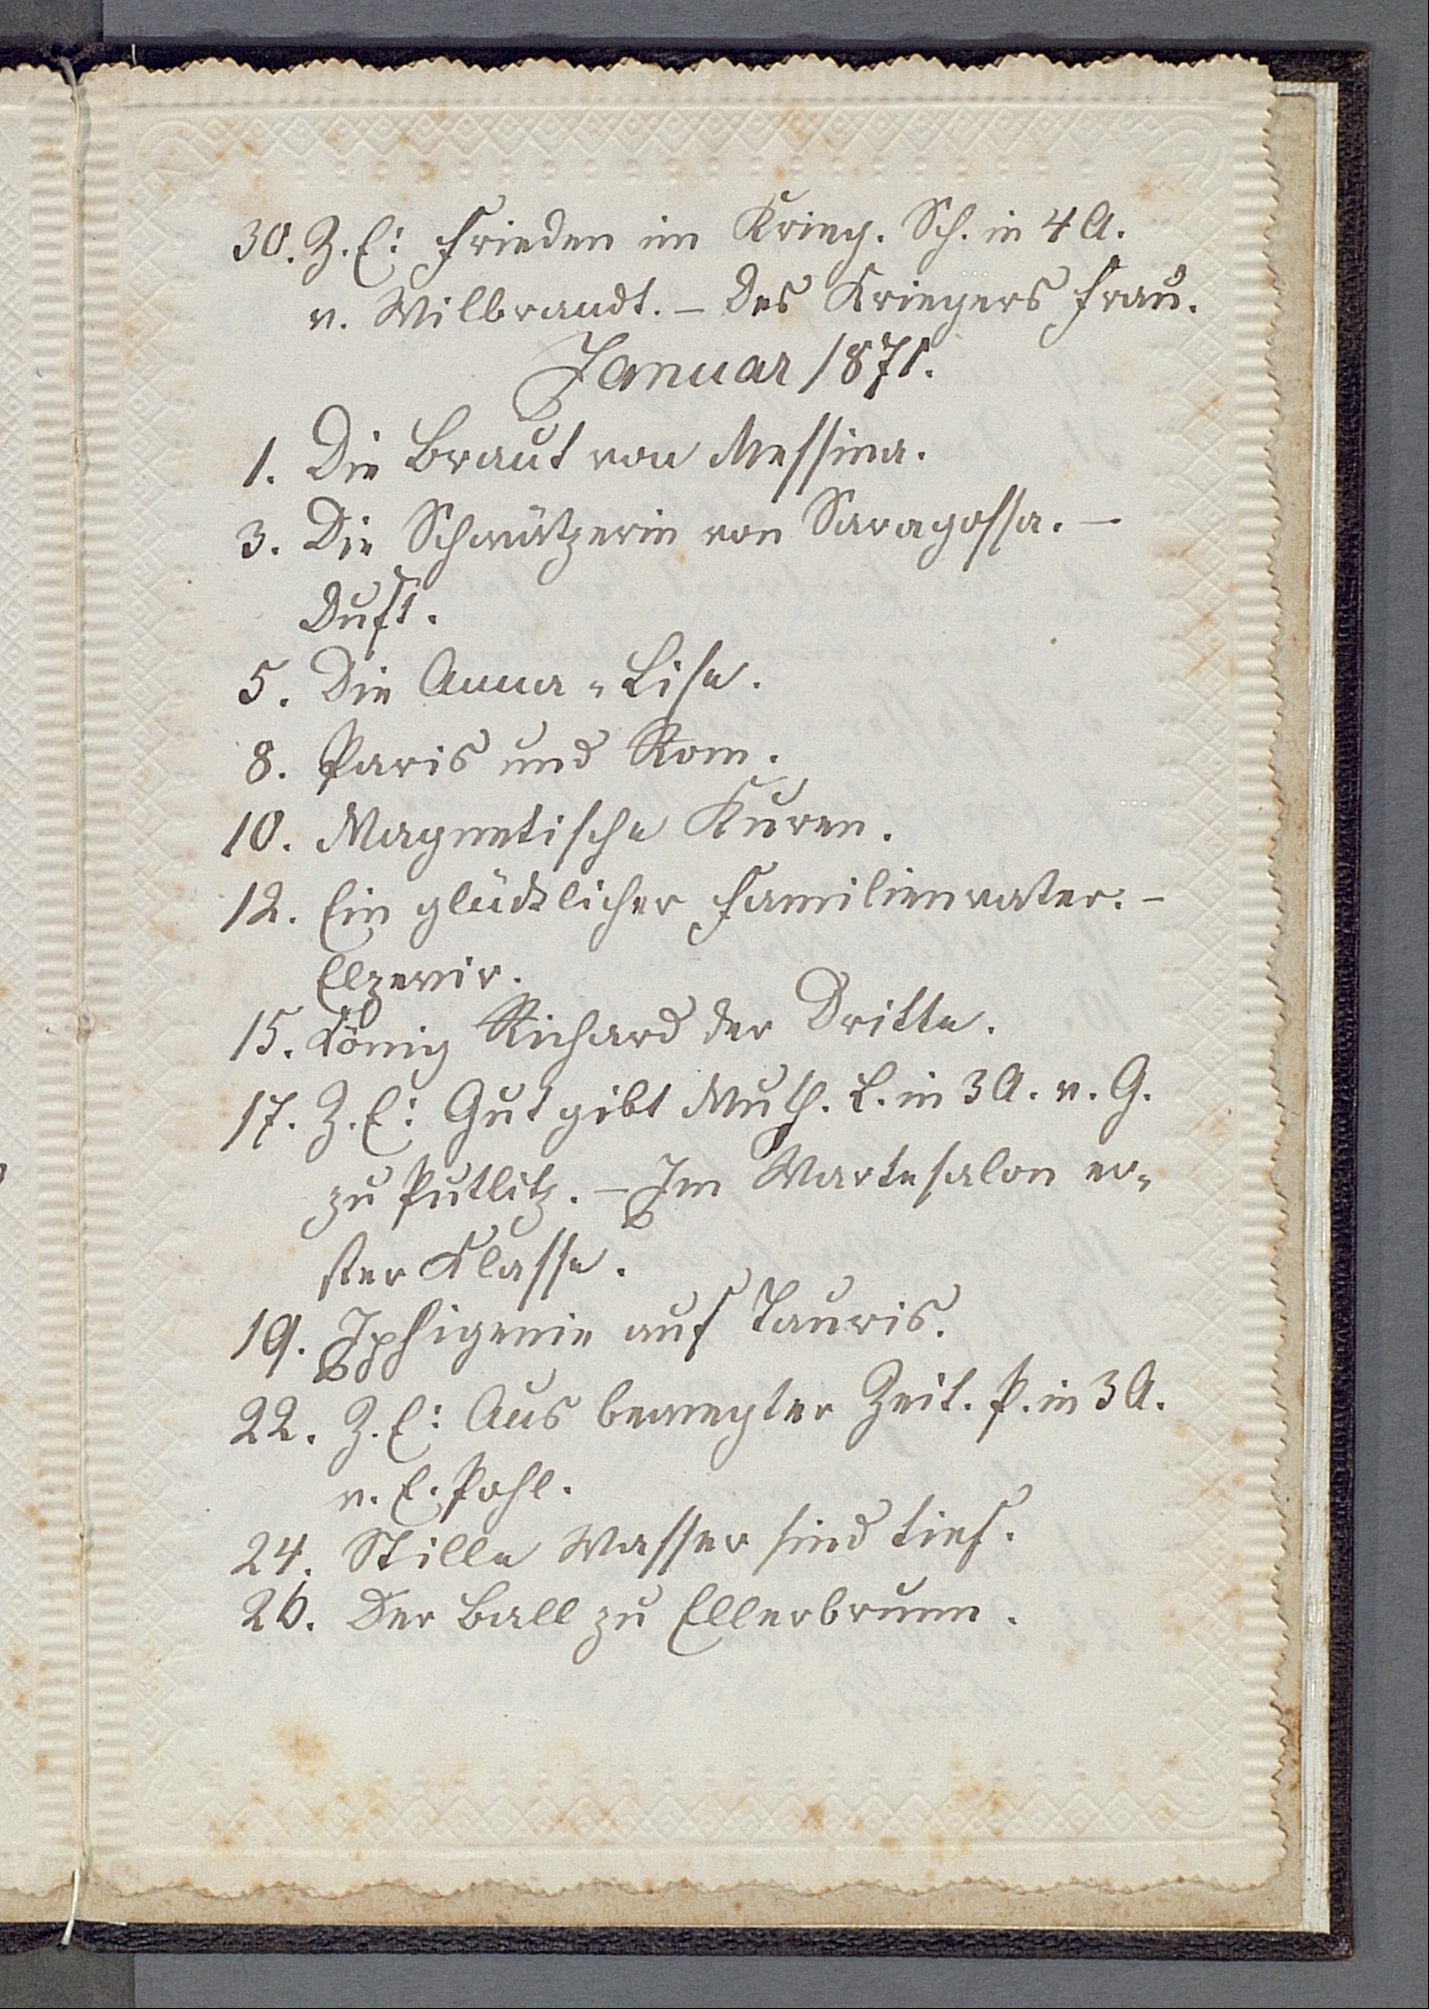 30. Z. E: Frieden im Krieg. Sch. in 4 A.
v. Wilbrandt. – Des Kriegers Frau.
Januar 1871.
1. Die Braut von Messina.
3. Die Schwätzerin von Saragossa. –
Duft.
5. Die Anna-Lise.
8. Paris und Rom.
10. Magnetische Kuren.
12. Ein glücklicher Familienvater. –
Elzevir.
15. König Richard der Dritte.
17. Z. E: Gut gibt Muth. L. in 3 A. v. G.
zu Putlitz. – Im Wartesalon er-
ster Klasse.
19. Iphigenie auf Tauris.
22. Z. E: Aus bewegter Zeit. P. in 3 A.
v. E. Pohl.
24. Stille Wasser sind tief.
26. Der Ball zu Ellerbrunn.